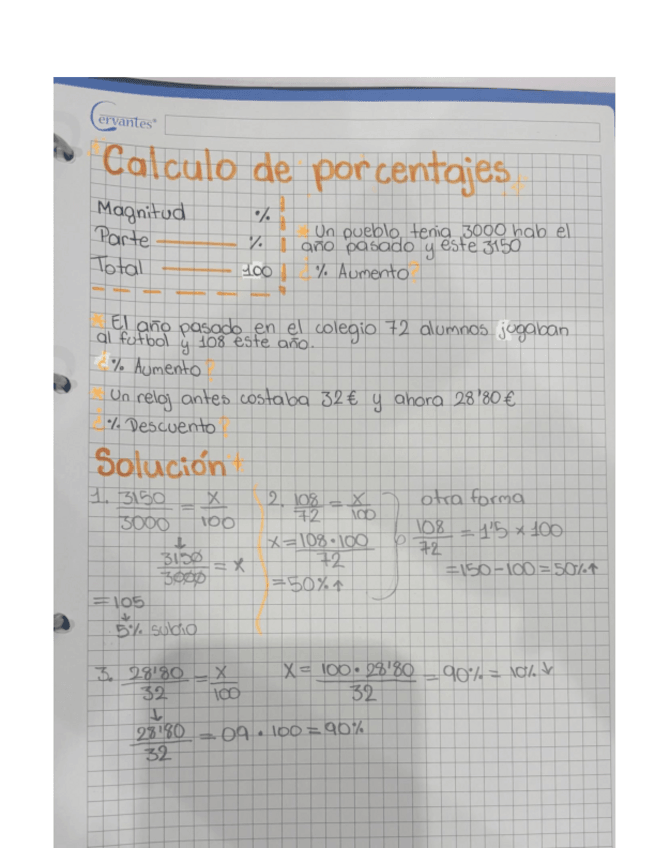 Cervantes®
Calculo de porcentajes
Magnitud %
Parte %
Total 100
Un pueblo tenia 3000 hab el
año pasado y este 3150
¿% Aumento?
El año pasado en el colegio 72 alumnos jugaban
al futbol y 108 este año.
¿% Aumento?
Un reloj antes costaba 32€ y ahora 28'80€
¿% Descuento?
Solución
1. 3150/3000 = x/100
↓
3150/3000 = x
= 105
↓
5% subio
2. 108/72 = x/100
x = 108·100/72
= 50%↑
otra forma
108/72 = 1'5 x 100
= 150 - 100 = 50%↑
3. 28'80/32 = x/100
x = 100·28'80/32 = 90% = 10%↓
↓
28'80/32 = 09 · 100 = 90%